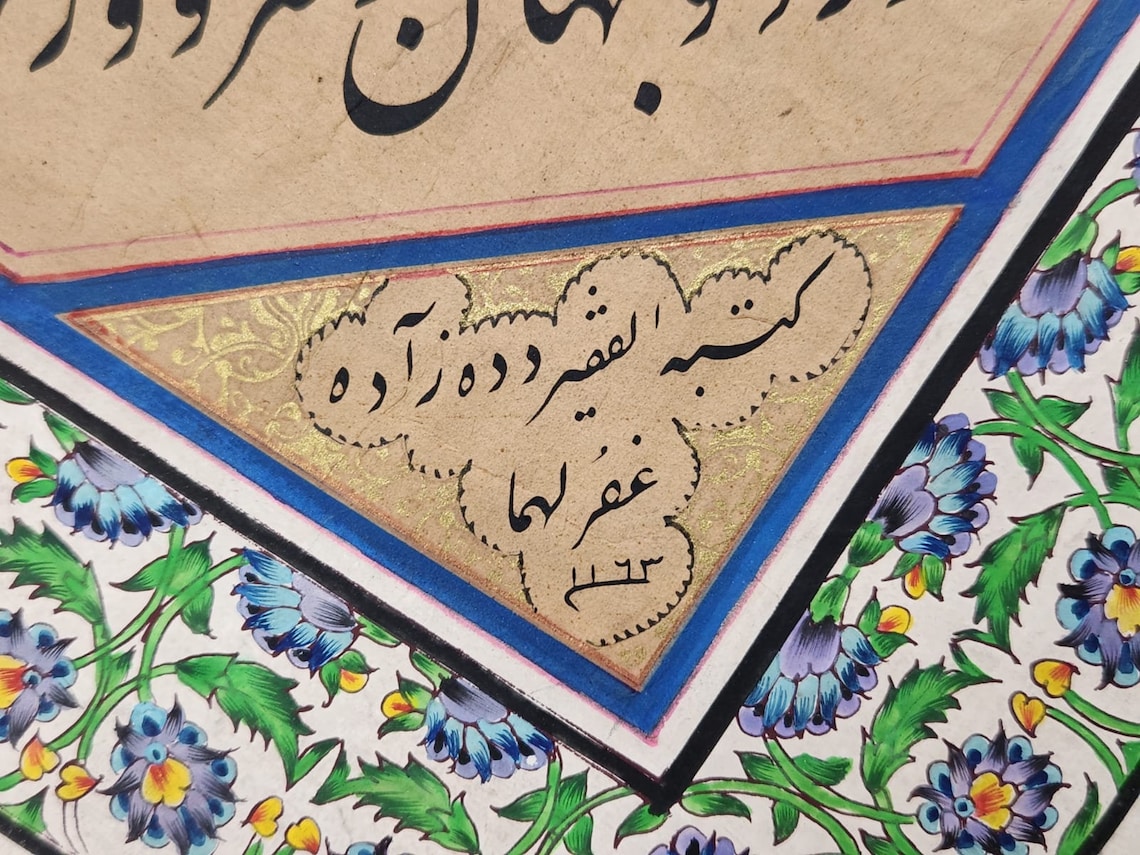 كتبه الفقير دده زآده
غفُر لهما
١١٦٣